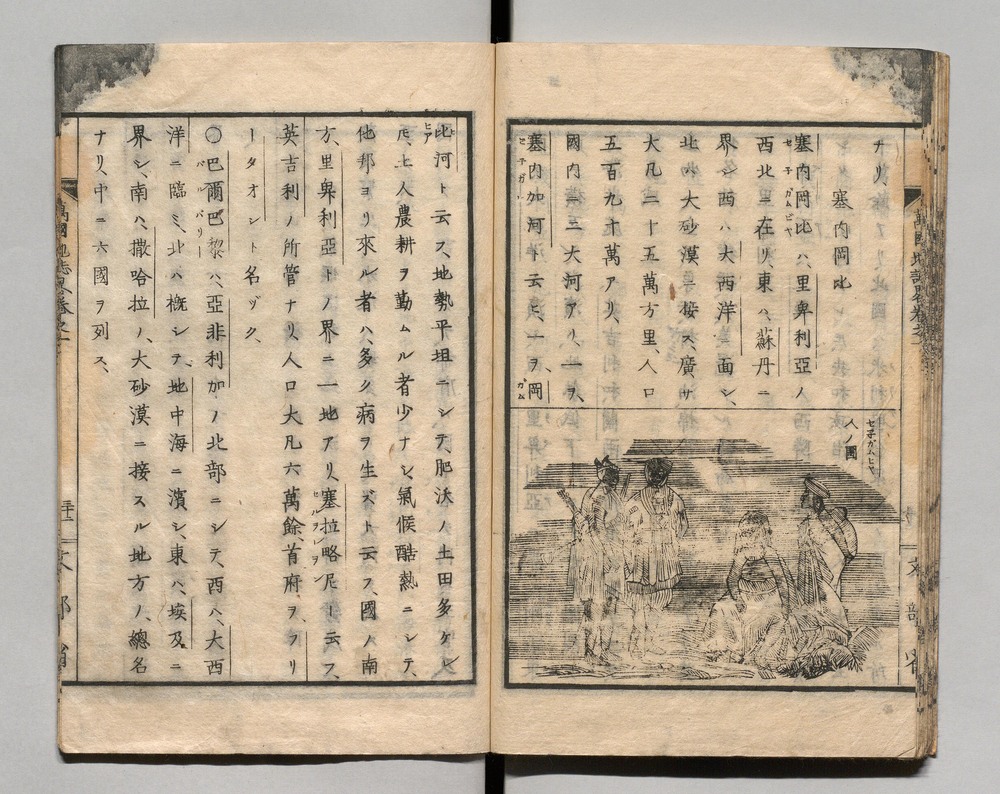 ナリ、
塞内岡比
塞内岡比ハ、里卑利亞ノ
セ子ガムビヤ
西北ニ在リ、東ハ、蘇丹ニ
界シ、西ハ、大西洋ニ面シ、
北ハ、大砂漠ニ接ス、廣サ
大凡二十五萬方里、人口
五百九十萬アリ、
國内ニ二大河アリ、一ヲ、
塞内加河ト云ヒ、一ヲ、岡
セ子ガル
ガム
セ子ガムビヤ
人ノ圖
比河ト云フ、地勢平坦ニシテ肥沃ノ土田多ケレ
ビア
𪜈、土人農耕ヲ勤ムル者少ナシ、氣候酷熱ニシテ、
他邦ヨリ來ル者ハ、多ク病ヲ生ズト云フ、國ノ南
方、里卑利亞トノ界ニ一地アリ、塞拉略尼ー云フ、
英吉利ノ所管ナリ、人口大凡六萬餘、首府ヲ、フリ
ータオント名ヅク、
〇巴爾巴黎ハ、亞非利加ノ北部ニシテ、西ハ、大西
バルバリー
洋ニ臨ミ、北ハ概シテ、地中海ニ濱シ、東ハ、埃及ニ
界シ、南ハ、撒哈拉ノ、大砂漠ニ接スル地方ノ、總名
ナリ、中ニ六國ヲ列ス、
萬國地誌略卷之一
文部省